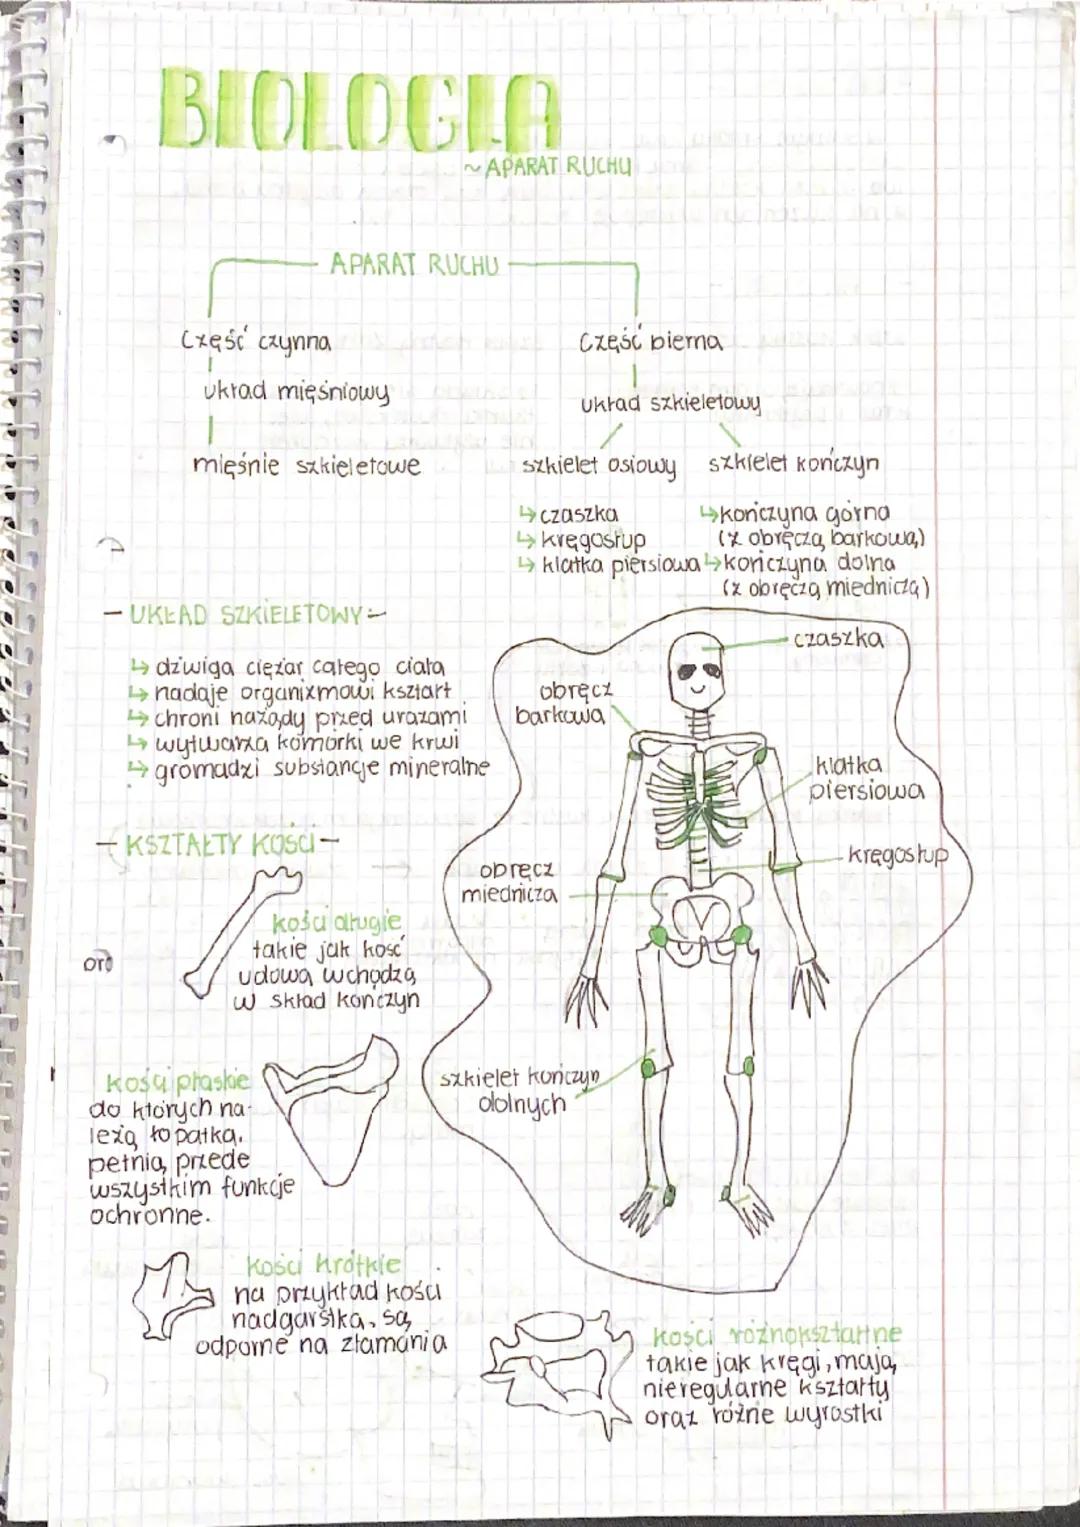 BIOLOGIA
~ APARAT RUCHU
APARAT RUCHU
Część czynna
układ mięśniowy
mięśnie szkieletowe
Część bierna
układ szkieletowy
szkielet osiowy
↳ czaszka
↳ kręgosłup
↳ klatka piersiowa
szkielet kończyn
↳ kończyna górna
(z obręczą barkową)
↳ kończyna dolna
(z obręczą miedniczą)
- UKŁAD SZKIELETOWY -
↳ dźwiga ciężar całego ciała
↳ nadaje organizmowi kształt
↳ chroni nażądy przed urazami
↳ wytwarza komórki we krwi
↳ gromadzi substancje mineralne
czaszka
obręcz
barkowa
klatka
piersiowa
kręgosłup
obręcz
miednicza
szkielet kończyn
dolnych
- KSZTAŁTY KOŚCI -
kości długie
takie jak kość
udowa wchodzą
w skład kończyn
kości płaskie
do których na-
leżą łopatka.
pełnią przede
wszystkim funkcje
ochronne.
kości krótkie
na przykład kości
nadgarstka, są
odporne na złamania
kości różnokształtne
takie jak kręgi, mają
nieregularne kształty
oraz różne wyrostki